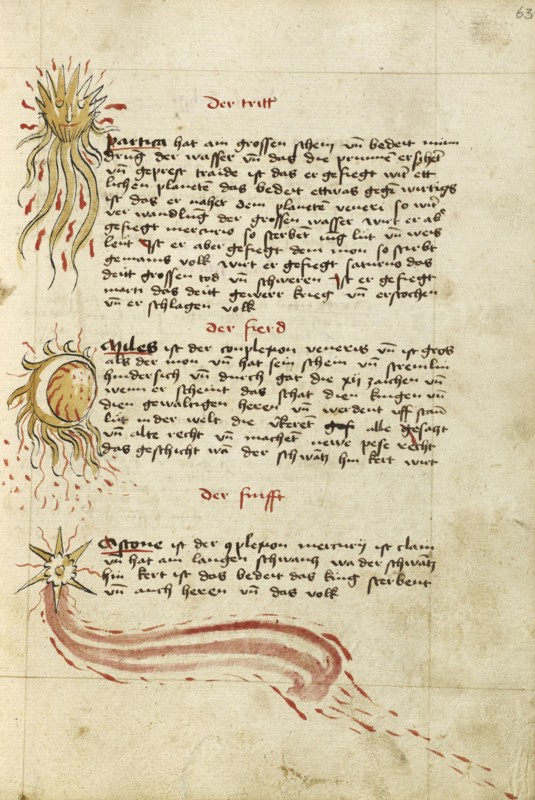 63
Der tritt
Partica hat ain grossen schein vñ bedeit
der wasser vñ das die prunne
vñ geprest traide ist das er gefiegt wirt ett
lichen planetē das bedeit ettwas gege wirtigs
ist das er nahet dem planetē veneri so
ver wandlung der grossen wasser wirt er ab
gefiegt mercurio so sterbent iūg lüt vñ weis
leut Ist er aber gefiegt dem mon so stirbt
gemains volk wirt er gefiegt saturno das
deitt grossen tod vñ schweren Ist er gefiegt
marti das deitt gewerr krieg vñ erstochen
vñ er schlagen volk
Der fierd
Miles ist der conplexion veneris vñ ist gros
als der mon vñ hat sein schein vñ stremlin
hindersich vñ durch gat die xij zaichen vñ
wenn er scheint das schat dien kingen vñ
dien gewaltigen heren vñ werdent uff stan
lüt in der welt die alle gesatzt
vñ alte recht vñ machent newe pese recht
das geschicht wa der schwātz hin kert wirt
Der finfft
Ascone ist der 9plexion mercurij ist clain
vñ hat ain langen schwantz wa der schwātz
hin kert ist das bedeit das king sterbent
vñ auch heren vñ das volk